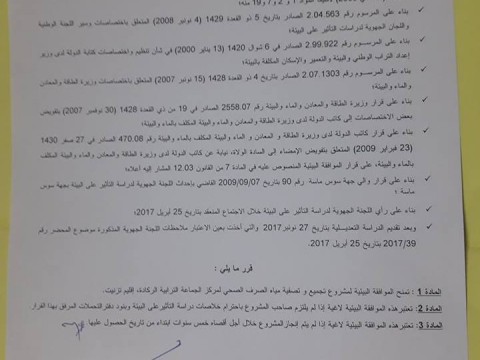 بناء على المرسوم رقم 2.04.563 الصادر بتاريخ 5 ذو القعدة 1429 (4 نونبر 2008) المتعلق باختصاصات وسير اللجنة الوطنية
واللجان الجهوية لدراسات التأثير على البيئة؛
بناء على المرسوم رقم 2.99.922 الصادر في 6 شوال 1420 (13 يناير 2000) في شأن تنظيم واختصاصات كتابة الدولة لدى وزير
إعداد التراب الوطني والبيئة والتعمير والإسكان المكلفة بالبيئة؛
بناء على المرسوم رقم 2.07.1303 الصادر بتاريخ 4 ذو القعدة 1428 (15 نونبر 2007) المتعلق باختصاصات وزيرة الطاقة والمعادن
والماء والبيئة؛
بناء على قرار وزيرة الطاقة و المعادن والماء والبيئة رقم 2558.07 الصادر في 19 من ذي القعدة 1428 (30 نونبر 2007) بتفويض
بعض الاختصاصات إلى كاتب الدولة لدى وزيرة الطاقة والمعادن والماء والبيئة المكلف بالماء والبيئة؛
بناء على قرار كاتب الدولة لدى وزيرة الطاقة و المعادن والماء والبيئة المكلف بالماء والبيئة رقم 470.08 الصادر في 27 صفر 1430
(23 فبراير 2009) المتعلق بتفويض الإمضاء إلى السادة الولاة، نيابة عن كاتب الدولة لدى وزيرة الطاقة والمعادن والماء والبيئة المكلف
بالماء والبيئة، على قرار الموافقة البيئية المنصوص عليه في المادة 7 من القانون 12.03 المشار إليه أعلاه؛
بناء على قرار والي جهة سوس ماسة رقم 90 بتاريخ 2009/09/07 القاضي بإحداث اللجنة الجهوية لدراسة التأثير على البيئة بجهة سوس
ماسة ؛
بناء على رأي اللجنة الجهوية لدراسة التأثير على البيئة خلال الاجتماع المنعقد بتاريخ 25 أبريل 2017؛
وبعد تقديم الدراسة التعديلية بتاريخ 27 نونبر 2017 والتي أخذت بعين الاعتبار ملاحظات اللجنة الجهوية المذكورة موضوع المحضر رقم
2017/39 بتاريخ 25 أبريل 2017.
قرر ما يلي :
المادة 1 : تمنح الموافقة البيئية لمشروع تجميع و تصفية مياه الصرف الصحي لمركز الجماعة الترابية الركادة، إقليم تزنيت.
المادة 2: تعتبر هذه الموافقة البيئية لاغية إذا لم يلتزم صاحب المشروع باحترام خلاصات دراسة التأثير على البيئة وبنود دفتر التحملات المرفق بهذا القرار
المادة 3: تعتبر هذه الموافقة البيئية لاغية إذا لم يتم إنجاز المشروع خلال أجل أقصاه خمس سنوات ابتداء من تاريخ الحصول عليها